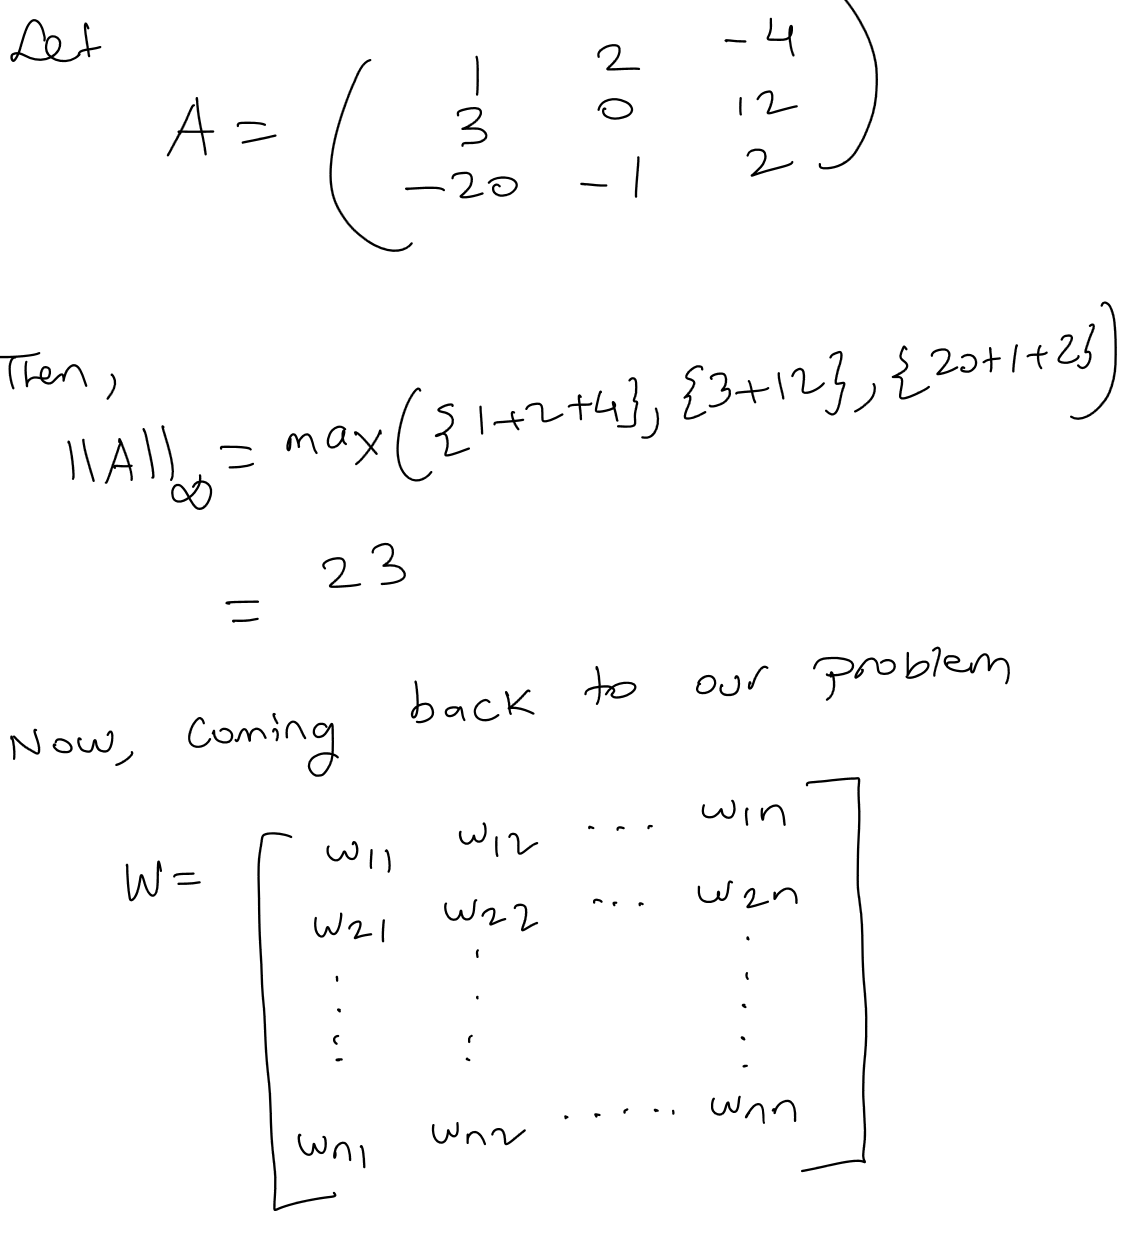 Let
A = ( 1 2 -4
3 0 12
-20 -1 2 )
Then,
||A||∞ = max({1+2+4}, {3+12}, {20+1+2})
= 23
Now, coming back to our problem
W = [ w11 w12 ... w1n
w21 w22 ... w2n
⋮ ⋮ ⋮
wn1 wn2 ...... wnn ]